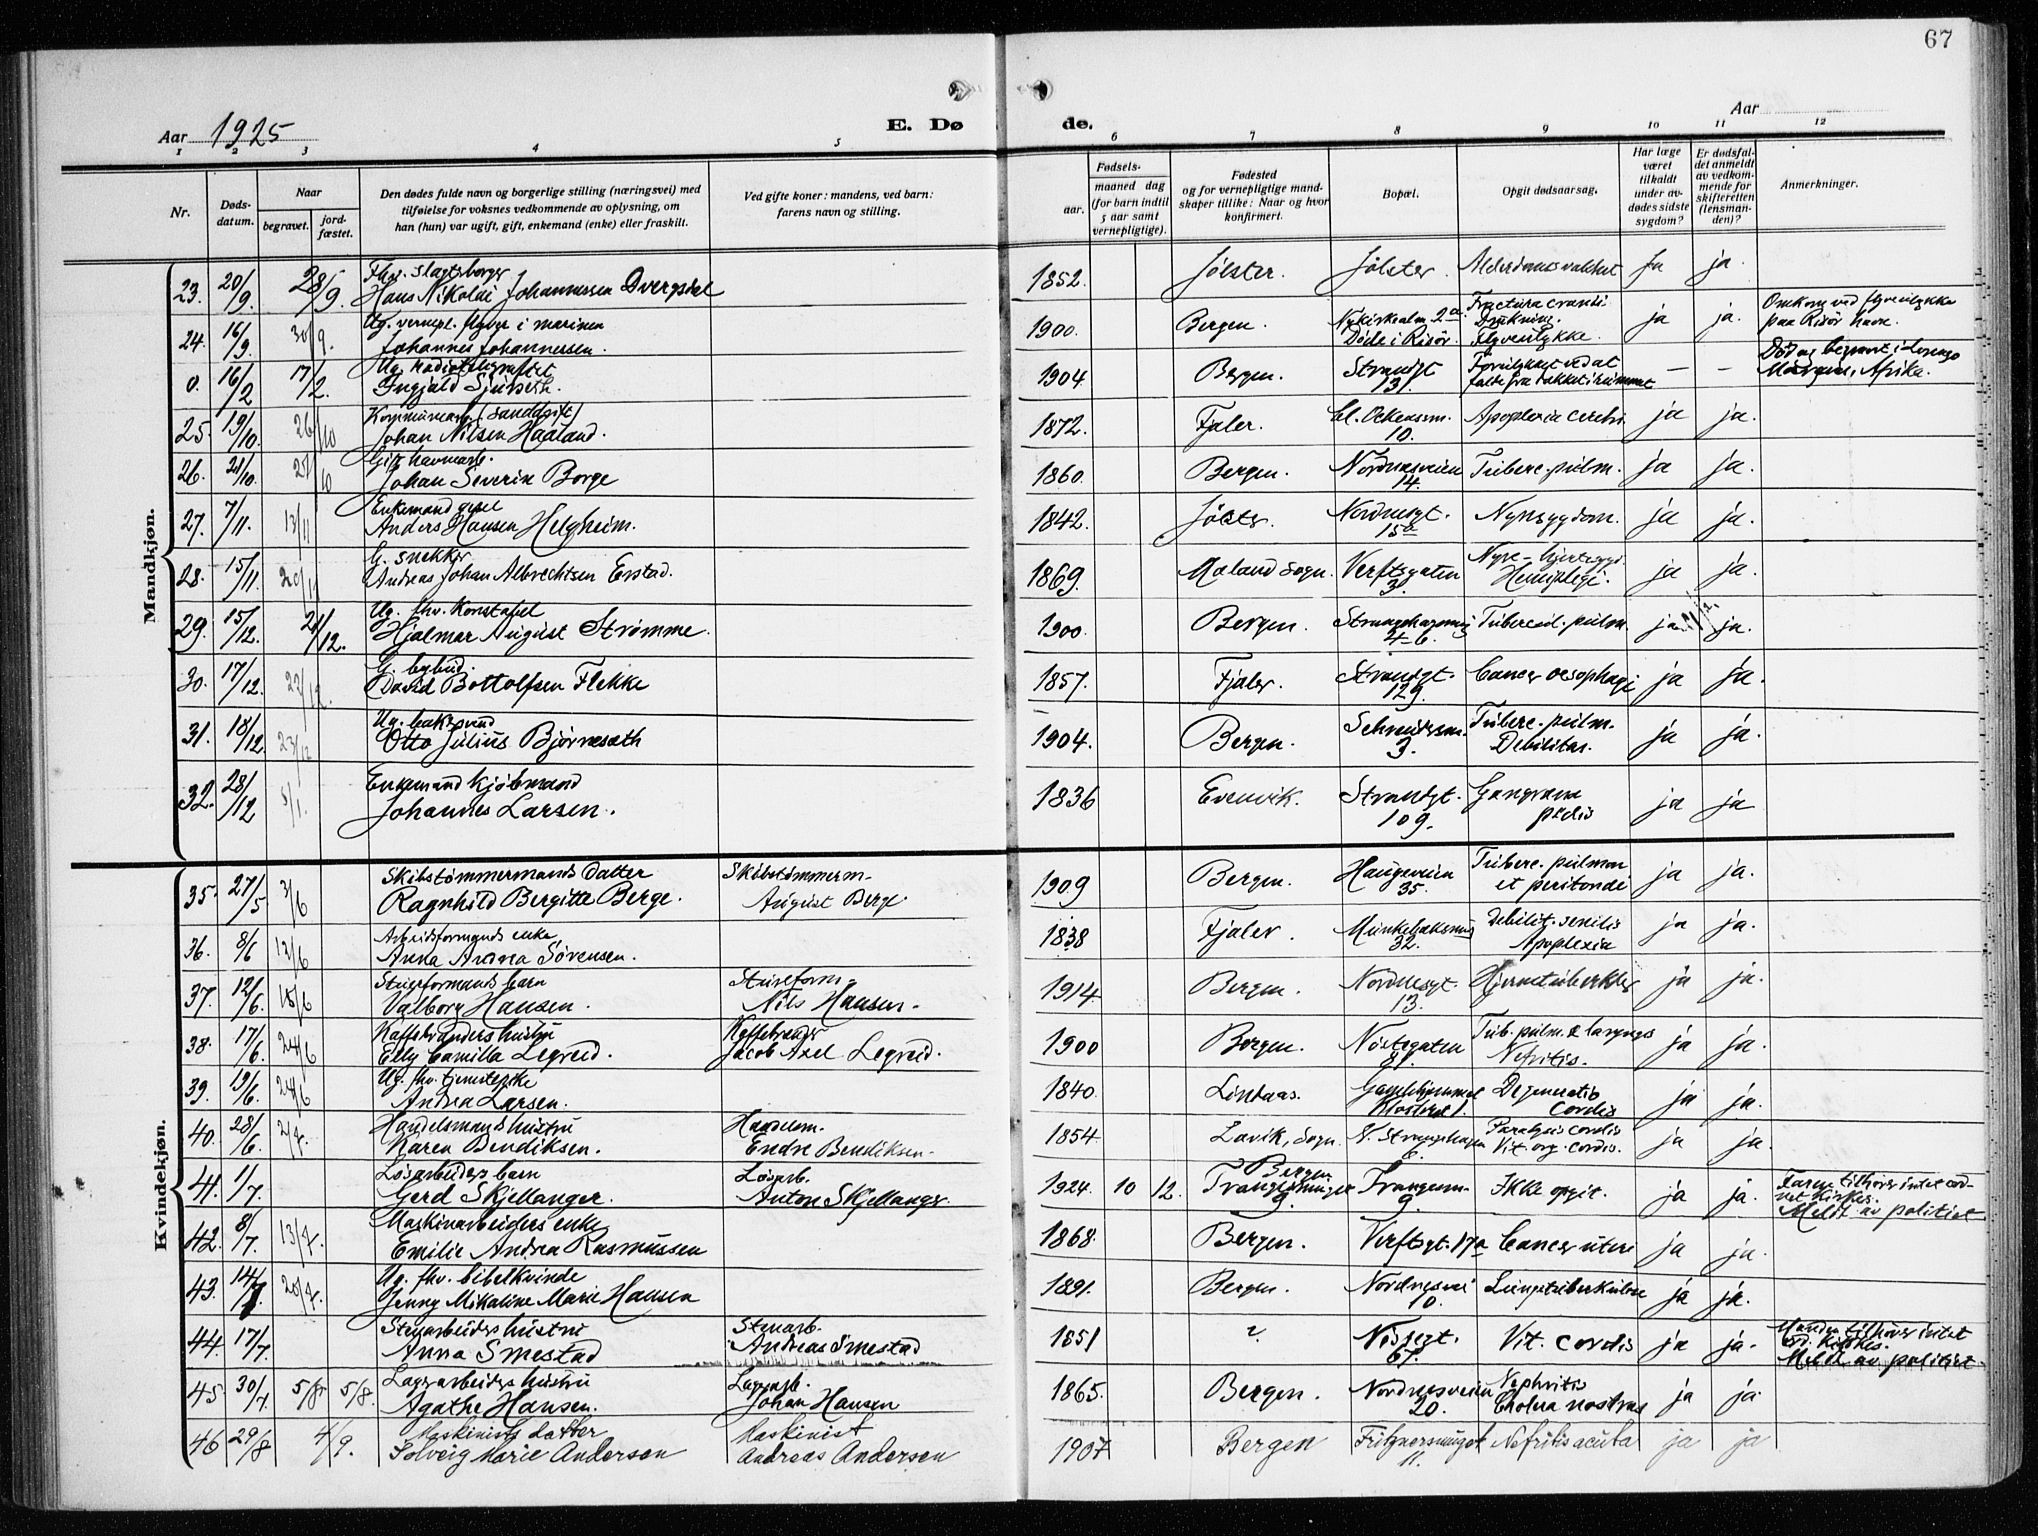 67
Aar 1925
E. Dø de.
Aar
1 2 3 4 5 6 7 8 9 10 11 12
Nr.
Døds-
datum.
Naar
begravet.
jord-
fæstet.
Den dødes fulde navn og borgerlige stilling (næringsvei) med
tilføielse for voksnes vedkommende av oplysning, om
han (hun) var ugift, gift, enkemand (enke) eller fraskilt.
Ved gifte koner: mandens, ved barn:
farens navn og stilling.
Fødsels-
aar.
maaned dag
(for barn indtil
5 aar samt
vernepligtige).
Fødested
og for vernepligtige mand-
skaper tillike: Naar og hvor
konfirmert.
Bopæl.
Opgit dødsaarsag.
Har læge
været
tilkaldt
under av-
dødes sidste
sygdom?
Er dødsfal-
det anmeldt
av vedkom-
mende for
skifteretten
(lensman-
den)?
Anmerkninger.
Mandkjøn.
23. 20/9. 28/9. Fhv. slagtsborger
Hans Nikolai Johannessen Dvergsdal 1852. Jølster. Jølster. Alderdomssvakhet ja ja.
24. 16/9. 30/9. Ug. vernepl. flyver i marinen
Johannes Johannessen. 1900. Bergen. Nykirkealm. 2a.
Døde i Risør. Fractura cranii
Drukning.
Flyveulykke. ja ja. Omkom ved flyveulykke
paa Risør havn.
0. 16/2 17/2. Ug. radiotelegrafist
Ingjald Sjurseth. 1904 Bergen. Strandgt
131. Forulykket ved at
falde fra dækket i rummet — — Død og begravet i Lorenzo
Marques, Afrika.
25. 19/10. 26/10 Kommunearb. (sanddrift)
Johan Nilsen Haaland. 1872. Fjaler. Cl. Ockensm.
10. Apoplexia cerebri. ja ja.
26. 21/10. 27/10 Gift havnearb.
Johan Severin Borge 1860. Bergen. Nordnesveien
14. Tuberc. pulm. ja ja.
27. 7/11. 13/11 Enkemand
Anders Hansen Helgheim. 1842. Jølster. Nordnesgt.
15a Nyresygdom. ja ja.
28. 15/11. 20/11 G. snekker
Andreas Johan Albrechtsen Erstad. 1869. Maland Sogn. Verftsgaten
3. Nyre- hjertesygd.
Hemiplegi. ja ja.
29. 15/12. 21/12. Ug. fhv. Konstabel
Hjalmar August Strømme. 1900. Bergen. Strangehagen
4-6. Tubercul. pulm. ja ja.
30. 17/12. 22/12. G. bybud.
David Bottolfsen Flekke 1857. Fjaler. Strandgt.
129. Cancer oesophagi ja ja.
31. 18/12. 23/12 Ug. baksvend
Otto Julius Bjørnesæth 1904. Bergen. Schneidersm.
3. Tuberc. pulm.
Debilitas. ja ja.
32. 28/12 5/1. Enkemand kjøbmand
Johannes Larsen. 1836 Evenvik. Strandgt.
109. Gangræna
pedis ja ja
Kvindekjøn.
35. 27/5 3/6 Skibstømmermands datter
Ragnhild Bergitte Berge. Skibstømmerm-
August Berge. 1909 Bergen. Haugeveien
35. Tuberc. pulmon
et peritonei ja ja.
36. 8/6 12/6 Arbeidsformands enke
Anna Andrea Sørensen. 1838 Fjaler. Munkebæksmug
32. Debilit. senilis
Apoplexia ja ja.
37. 12/6. 18/6 barn
Valborg Hansen.
Nils Hansen. 1914 Bergen. Nordnesgt.
13. Hjernetuberkler ja ja.
38. 17/6. 24/6 Kaffebrænders hustru
Elly Camilla Legreid. Kaffebrænder
Jacob Axel Legreid. 1900 Bergen. Nøstegaten
91. Tub. pulm. & laryngis
Nefritis. ja ja.
39. 19/6. 24/6 Ug. fhv. tjenestepike
Andrea Larsen. 1840. Lindaas. Gamlehjemmet
Klosteret 1. Degeneratio
Cordis ja ja.
40. 28/6. 2/7. Handelsmands hustru
Karen Bendiksen. Handelsm.
Endre Bendiksen. 1854. Lavik, Sogn. N. Strangehagen
6. Paralysis cordis
Vit. org. cordis. ja ja.
41. 1/7. Løsarbeiders barn
Gerd Skjellanger. Løsarb.
Anton Skjellanger. 1924. 10 12. Bergen
9. 9. Ikke opgit. ja ja. Faren tilhører intet ord-
net kirkes.
Meldt av politiet
42. 8/7. 13/7. Maskinarbeiders enke
Emilie Andrea Rasmussen 1868. Bergen. Verftsgt. 17a Cancer uteri ja ja.
43. 14/7. 20/7. Ug. fhv. bibelkvinde
Jenny Mikaline Marie Hansen 1891. Bergen. Nordnesvei
10. Lungetuberkulose ja ja.
44. 17/7. Stenarbeiders hustru
Anna Smestad Stenarb.
Andreas Smestad 1851 ? Nøstegt.
67. Vit. cordis ja ja. Manden tilhører intet
Meldt av politiet.
45. 30/7. 5/8. 5/8. Lagerarbeiders hustru
Agathe Hansen. Lagerarb.
Johan Hansen 1865. Bergen. Nordnesveien
20. Nephritis
Cholera nostras ja ja.
46 29/8 4/9. Maskinists datter
Solveig Marie Andersen Maskinist
Andreas Andersen 1907 Bergen Fritznersmuget
11. Nefritis acuta ja ja